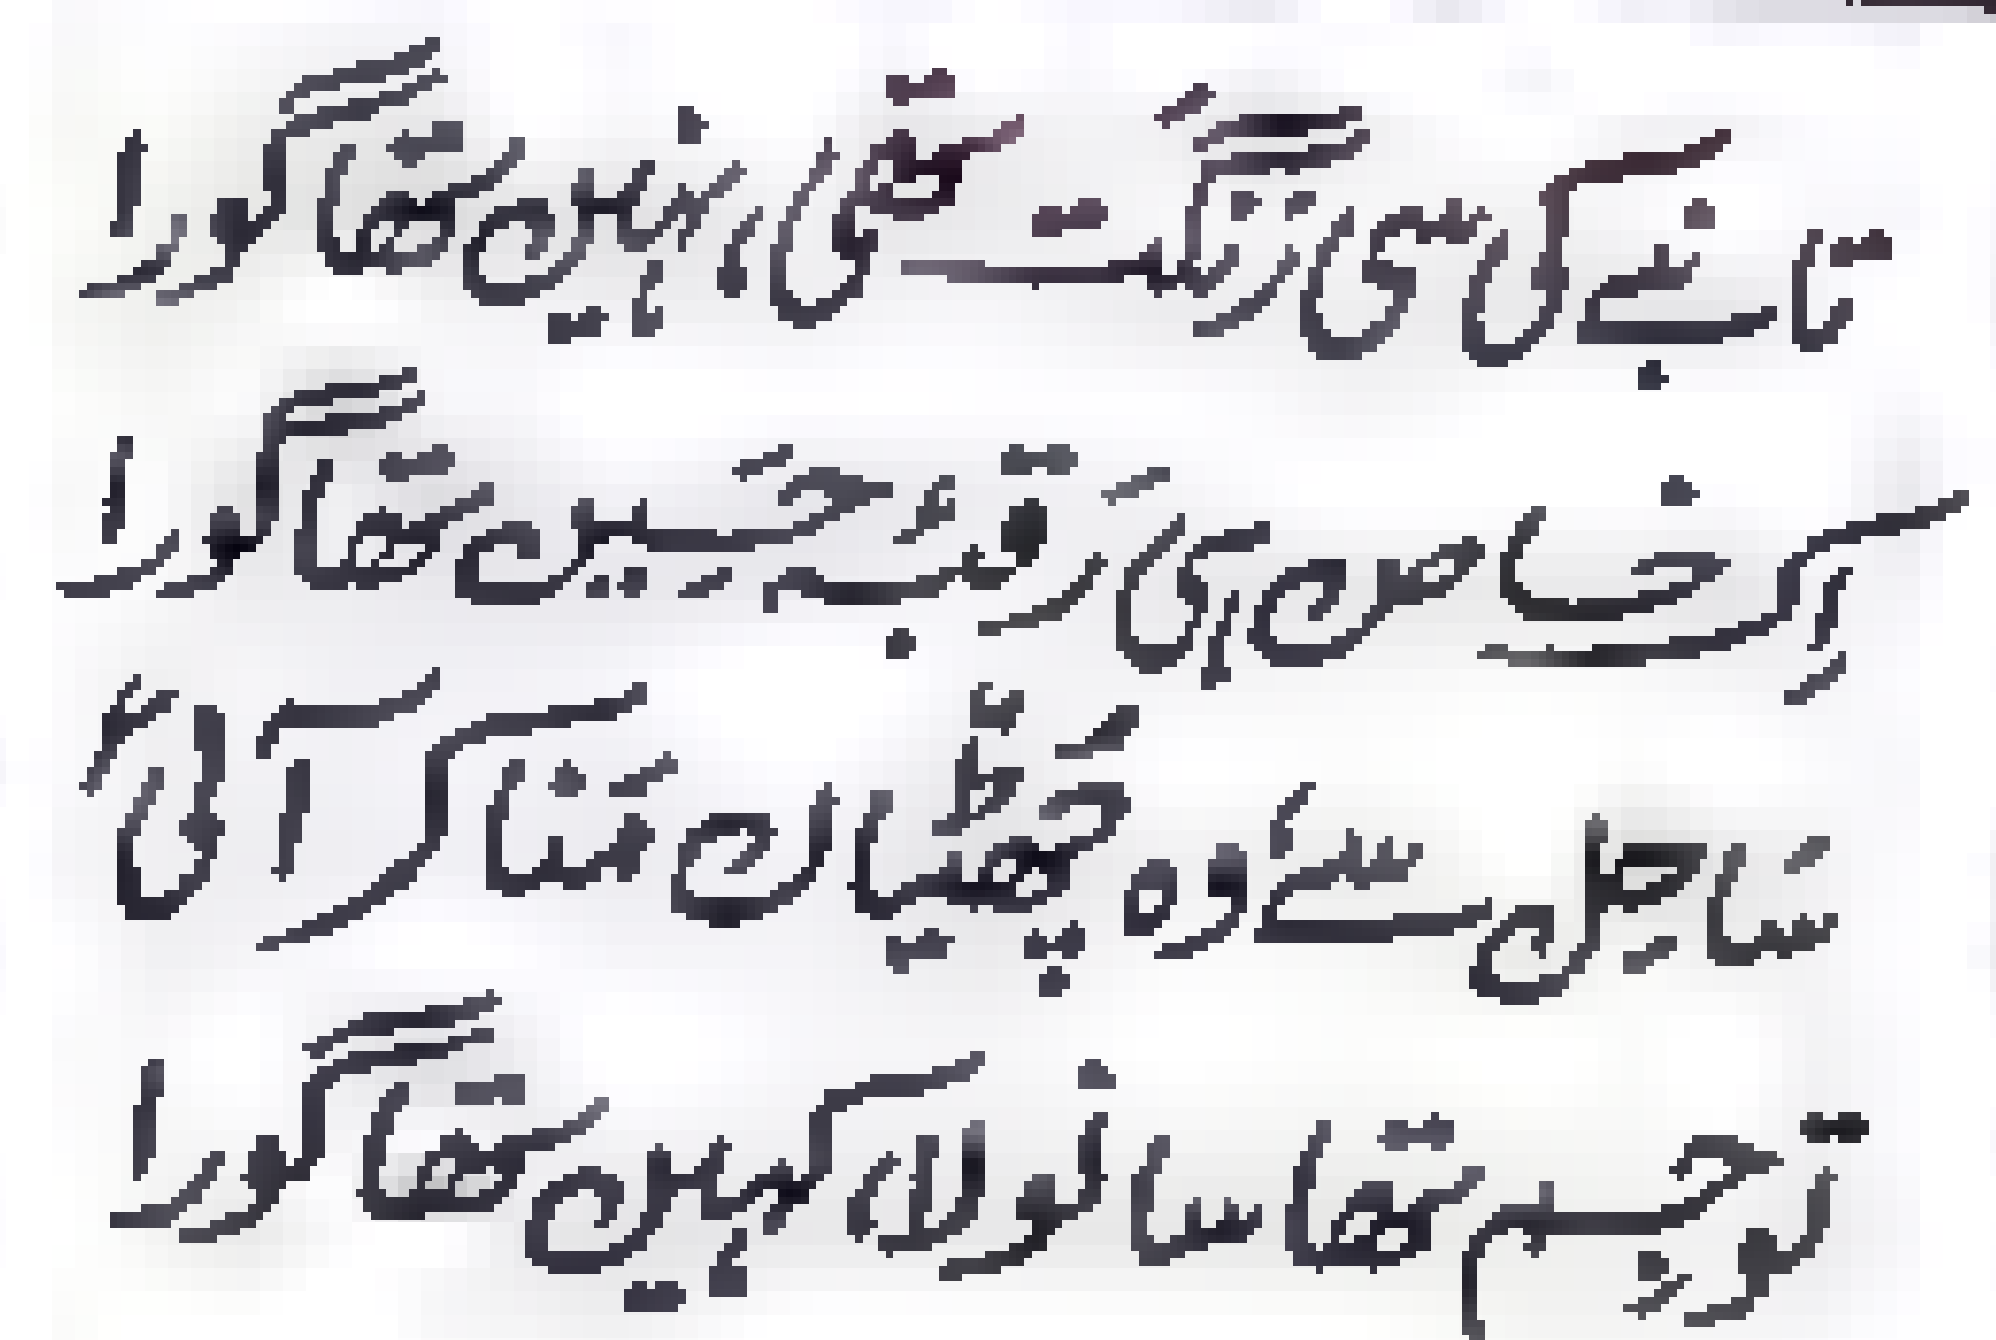 تانبے کی سی رَنگت تھی، نہیں تھا گورا
اِک خاص ہی رَقبۂ حَسِیں تھا گورا
سَاحِل سے وہ چُھٹّیاں مَنا کر آئی
تو جِسم تھا سانولا، کہیں تھا گورا